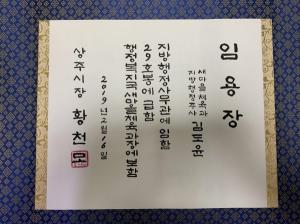 임용장
새마을체육과
지방행정주사 김도연
지방행정사무관에 임함
29호봉에 급함
행정복지국 새마을체육과장에 보함
2019년 2월 16일
상주시장 황천모